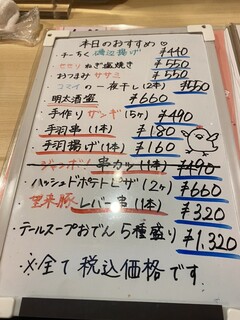 本日のおすすめ♡
・チーちく磯辺揚げ ¥440
・セセリねぎ塩焼き ¥550
・おつまみササミ ¥550
・コマイの一夜干し(2本) ¥550
・明太酒盗 ¥660
・手作りザンギ(5ヶ) ¥490
・手羽串(1本) ¥180
・手羽揚げ(1本) ¥160
・ジャンボ!串カツ(1本) ¥490
・ハッシュドポテトピザ(2ヶ) ¥660
・里米豚レバー串(1本) ¥320
・テールスープおでん5種盛り ¥1,320
※全て税込価格です.